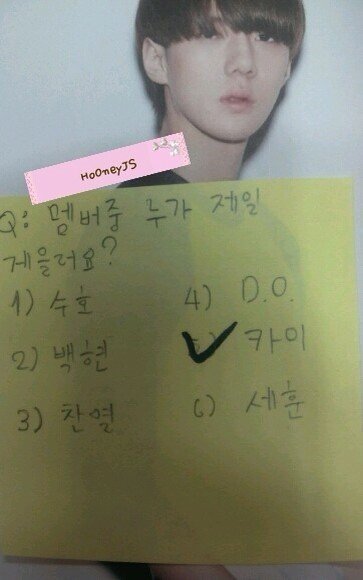 HoOneyJS
Q: 멤버중 누가 제일
게을러요?
1) 수호 4) D.O.
2) 백현 5) 카이
3) 찬열 6) 세훈